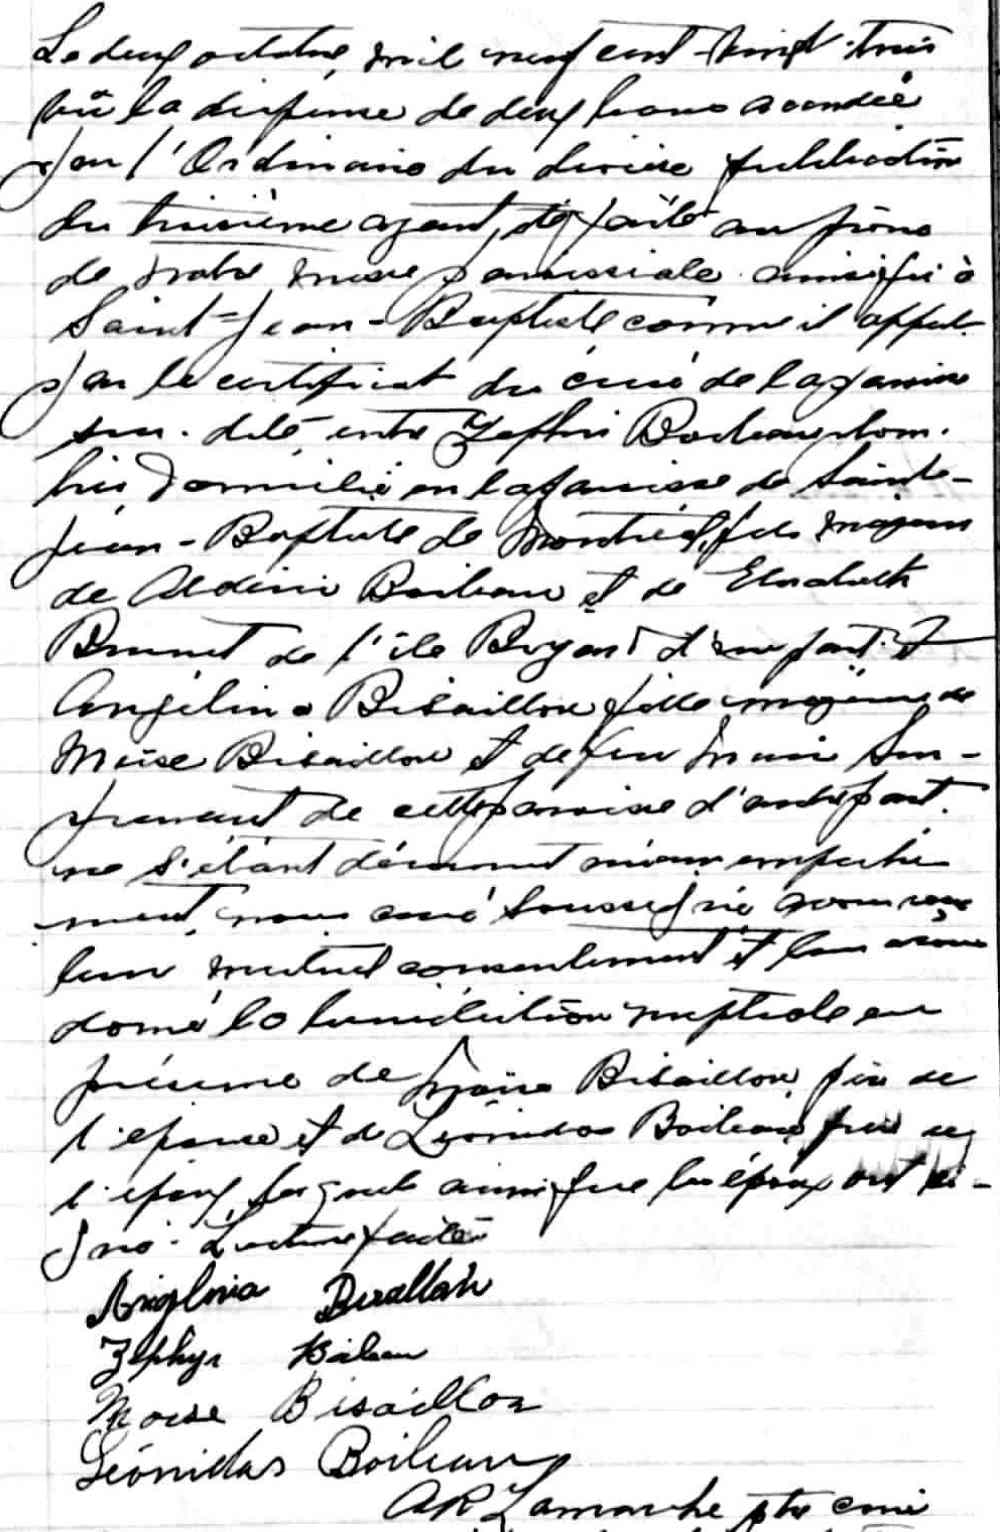 Le deux octobre, mil neuf cent vingt-trois
vû la dispense de deux bans accordée
par l'Ordinaire du diocèse publication
du troisième ayant, été faite au prône
de notre messe paroissiale ainsi qu'à
Saint-Jean-Baptiste comme il appert
par le certificat du curé de la paroisse
sus-dite, entre Zephir Boileau plom-
bier domicilié en la paroisse de Saint-
Jean-Baptiste de Montréal, fils majeur
de Boileau et de Elisabeth
Brunet de l'île Bizard d'une part et
Angélina Bisaillon fille majeure de
Moïse Bisaillon et de feu Marie Sur-
prenant de cette paroisse d'autre part.
ne s'étant découvert aucun empêche-
ment, nous curé soussigné avons reçu
leur mutuel consentement et leur avons
donné la bénédiction nuptiale en
présence de Moïse Bisaillon père de
l'épouse et de Léonidas Boileau frère de
l'époux lesquels ainsi que les époux ont si-
gné. Lecture faite
Angelina Bisaillon
Zephyr Boileau
Moise Bisaillon
Léonidas Boileau
AR Lamarche ptre curé